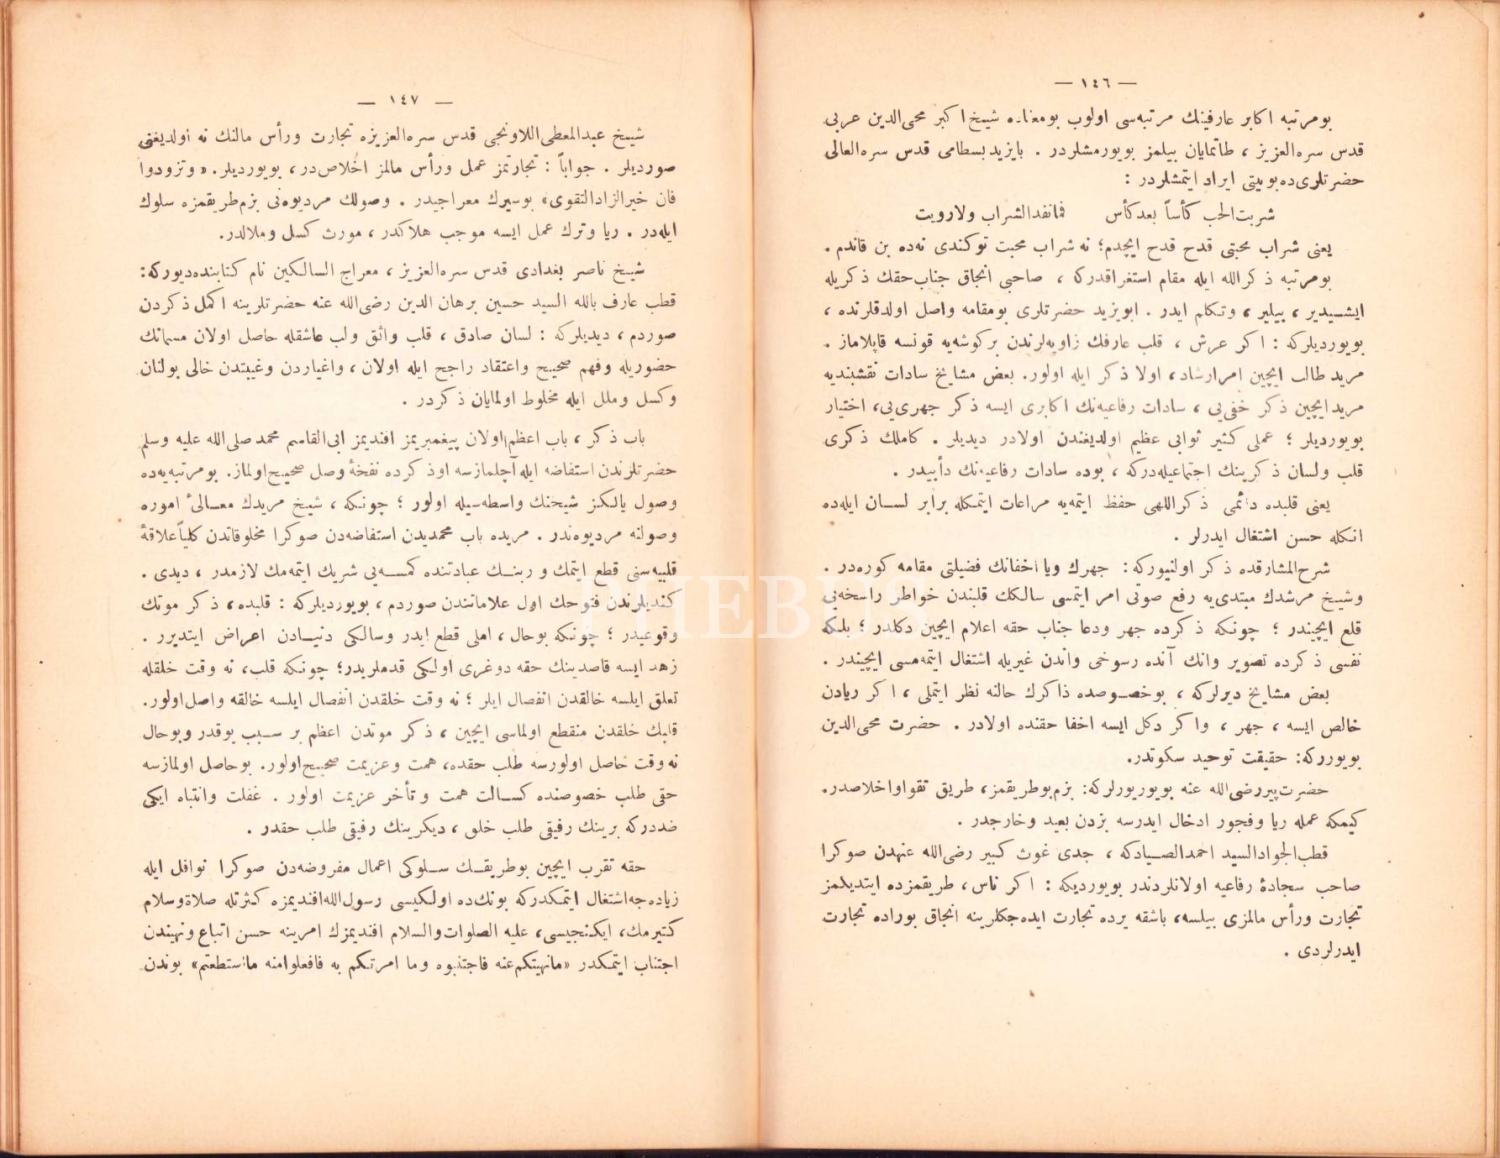 — ١٤٦ —
بومرتبه اكابر عارفينك مرتبه‌سى اولوب بومعناده شيخ اكبر محى‌الدين عربى
قدس سره‌العزيز ، طاتمايان بيلمز بويورمشلردر . بايزيد بسطامى قدس سره‌العالى
حضرتلرى‌ده بوبيتى ايراد ايتمشلردر :
شربت‌الحب كأساً بعد كأس فمانفدالشراب ولارويت
يعنى شراب محبتى قدح قدح ايچدم؛ نه شراب محبت توكندى نه‌ده بن قاندم .
بومرتبه ذكرالله ايله مقام استغراقدركه ، صاحبى انجاق جناب‌حقك ذكريله
ايشيدير ، بيلير ، وتكلم ايدر . ابويزيد حضرتلرى بومقامه واصل اولدقلرنده ،
بويورديلركه : اكر عرش ، قلب عارفك زاويه‌لرندن بركوشه‌يه قونسه قاپلاماز .
مريد طالب ايچين امرارشاد، اولا ذكر ايله اولور. بعض مشايخ سادات نقشبنديه
مريدايچين ذكر خفى‌يى ، سادات رفاعيه‌نك اكابرى ايسه ذكر جهرى‌يى، اختيار
بويورديلر ؛ عملى كثير ثوابى عظيم اولديغندن اولادر ديديلر . كاملك ذكرى
قلب ولسان ذكرينك اجتماعيله‌دركه ، بوده سادات رفاعيه‌نك دأبيدر .
يعنى قلبده دائمى ذكراللهى حفظ ايتمه‌يه مراعات ايتمكله برابر لسان ايله‌ده
انكله حسن اشتغال ايدرلر .
شرح‌المشارقده ذكر اولنيوركه: جهرك ويا اخفانك فضيلتى مقامه كوره‌در .
وشيخ مرشدك مبتدى‌يه رفع صوتى امر ايتمسى سالكك قلبندن خواطر راسخه‌يى
قلع ايچيندر ؛ چونكه ذكرده جهر ودعا جناب حقه اعلام ايچين دكلدر ؛ بلكه
نفسى ذكرده تصوير وانك آنده رسوخى واندن غيريله اشتغال ايتمه‌مسى ايچيندر .
بعض مشايخ ديرلركه ، بوخصوصده ذاكرك حالنه نظر ايتملى ، اكر ريادن
خالص ايسه ، جهر ، واكر دكل ايسه اخفا حقنده اولادر . حضرت محى‌الدين
بويورركه: حقيقت توحيد سكوتدر.
حضرت‌پيررضى‌الله عنه بويوريورلركه: بزم‌بوطريقمز، طريق تقواواخلاصدر.
كيمكه عمله ريا وفجور ادخال ايدرسه بزدن بعيد وخارجدر .
قطب‌الجوادالسيد احمدالصيادكه ، جدى غوث كبير رضى‌الله عنهدن صوكرا
صاحب سجادۀ رفاعيه اولانلردندر بويورديكه : اكر ناس، طريقمزده ايتديكمز
تجارت ورأس مالمزى بيلسه، باشقه يرده تجارت ايده‌جكلرينه انجاق بوراده تجارت
ايدرلردى .
— ١٤٧ —
شيخ عبدالمعطى‌اللاونجى قدس سره‌العزيزه تجارت ورأس مالنك نه اولديغنى
صورديلر . جواباً : تجارتمز عمل ورأس مالمز اخلاص‌در، بويورديلر. «وتزودوا
فان خيرالزادالتقوى» بوسيرك معراجيدر . وصولك مرديوه‌نى بزم‌طريقمزه سلوك
ايله‌در . ريا وترك عمل ايسه موجب هلاكدر ، مورث كسل وملالدر.
شيخ ناصر بغدادى قدس سره‌العزيز ، معراج السالكين نام كتابنده‌ديوركه:
قطب عارف بالله السيد حسين برهان الدين رضى‌الله عنه حضرتلرينه اكمل ذكردن
صوردم ، ديديلركه : لسان صادق ، قلب واثق ولب عاشقله حاصل اولان مسمانك
حضوريله وفهم صحيح واعتقاد راجح ايله اولان ، واغياردن وغيبتدن خالى بولنان
وكسل وملل ايله مخلوط اولمايان ذكردر .
باب ذكر ، باب اعظم‌اولان پيغمبريمز افنديمز ابى‌القاسم محمد صلى‌الله عليه وسلم
حضرتلرندن استفاضه ايله آچلمازسه اوذكرده نفخۀ وصل صحيح‌اولماز. بومرتبه‌يه‌ده
وصول يالكز شيخنك واسطه‌سيله اولور ؛ چونكه ، شيخ مريدك معالئ اموره
وصولنه مرديوه‌ندر . مريده باب محمديدن استفاضه‌دن صوكرا مخلوقاتدن كلياًعلاقۀ
قلبيه‌سنى قطع ايتمك و ربنك عبادتنده كمسه‌يى شريك ايتمه‌مك لازمدر ، ديدى .
كنديلرندن فتوحك اول علاماتندن صوردم ، بويورديلركه : قلبده ، ذكر موتك
وقوعيدر ؛ چونكه بوحال ، املى قطع ايدر وسالكى دنيادن اعراض ايتديرر .
زهد ايسه قاصدينك حقه دوغرى اولكى قدملريدر؛ چونكه قلب، نه وقت خلقله
تعلق ايلسه خالقدن انفصال ايلر ؛ نه وقت خلقدن انفصال ايلسه خالقه واصل‌اولور.
قلبك خلقدن منقطع اولماسى ايچين ، ذكر موتدن اعظم بر سبب يوقدر وبوحال
نه‌وقت حاصل اولورسه طلب حقده، همت وعزيمت صحيح‌اولور. بوحاصل اولمازسه
حتى طلب خصوصنده كسالت همت و تأخر عزيمت اولور . غفلت وانتباه ايكى
ضددركه برينك رفيقى طلب خلق ، ديكرينك رفيقى طلب حقدر .
حقه تقرب ايچين بوطريقك سلوكى اعمال مفروضه‌دن صوكرا نوافل ايله
زياده‌جه‌اشتغال ايتمكدركه بونك‌ده اولكيسى رسول‌الله‌افنديمزه كثرتله صلاةوسلام
كتيرمك، ايكنجيسى، عليه الصلوات‌والسلام افنديمزك امرينه حسن اتباع ونهيندن
اجتناب ايتمكدر «مانهيتكم‌عنه فاجتنبوه وما امرتكم به فافعلوامنه مااستطعتم» بوندن
THEBES